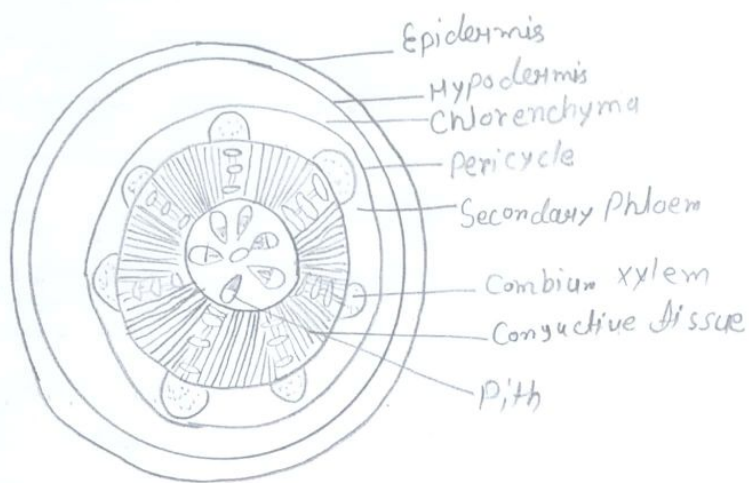 Epidermis
Hypodermis
Chlorenchyma
Pericycle
Secondary Phloem
Combium xylem
Conjuctive tissue
Pith